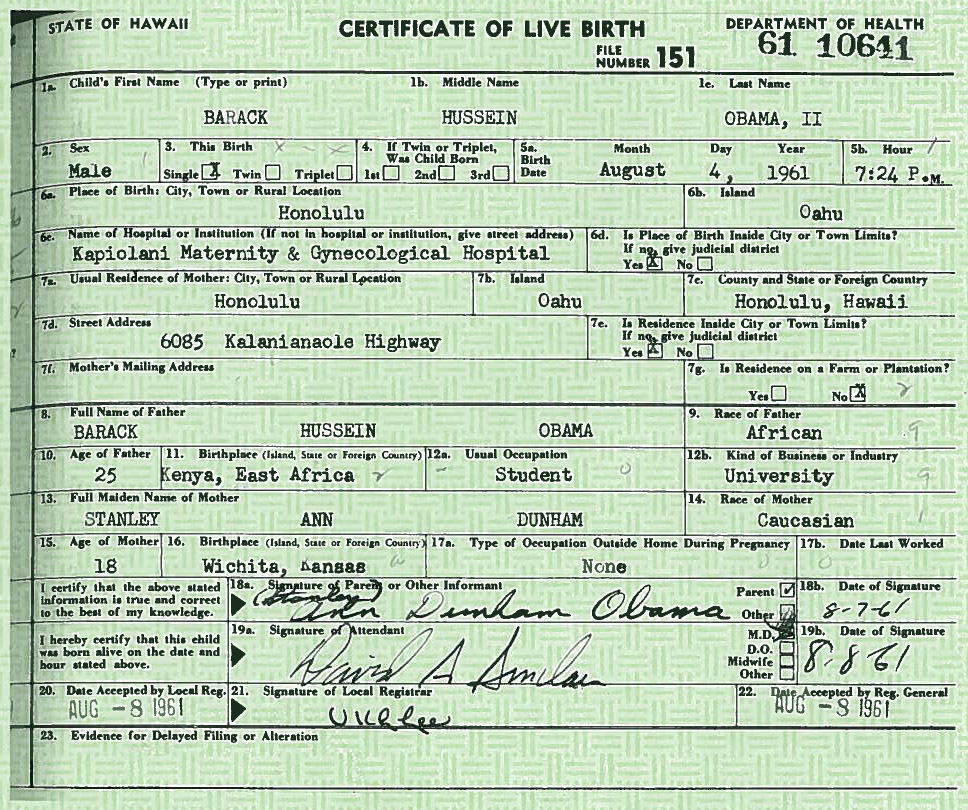 STATE OF HAWAII
CERTIFICATE OF LIVE BIRTH
DEPARTMENT OF HEALTH
FILE NUMBER 151 61 10641
1a. Child's First Name (Type or print) 1b. Middle Name 1c. Last Name
BARACK HUSSEIN OBAMA, II
2. Sex 3. This Birth 4. If Twin or Triplet, Was Child Born 5a. Birth Date Month Day Year 5b. Hour
Male Single X Twin Triplet 1st 2nd 3rd August 4, 1961 7:24 P.M.
6a. Place of Birth: City, Town or Rural Location 6b. Island
Honolulu Oahu
6c. Name of Hospital or Institution (If not in hospital or institution, give street address) 6d. Is Place of Birth Inside City or Town Limits? If no, give judicial district
Kapiolani Maternity & Gynecological Hospital Yes X No
7a. Usual Residence of Mother: City, Town or Rural Location 7b. Island 7c. County and State or Foreign Country
Honolulu Oahu Honolulu, Hawaii
7d. Street Address 7e. Is Residence Inside City or Town Limits? If no, give judicial district
6085 Kalanianaole Highway Yes X No
7f. Mother's Mailing Address 7g. Is Residence on a Farm or Plantation?
Yes No X
8. Full Name of Father 9. Race of Father
BARACK HUSSEIN OBAMA African
10. Age of Father 11. Birthplace (Island, State or Foreign Country) 12a. Usual Occupation 12b. Kind of Business or Industry
25 Kenya, East Africa Student University
13. Full Maiden Name of Mother 14. Race of Mother
STANLEY ANN DUNHAM Caucasian
15. Age of Mother 16. Birthplace (Island, State or Foreign Country) 17a. Type of Occupation Outside Home During Pregnancy 17b. Date Last Worked
18 Wichita, Kansas None
I certify that the above stated information is true and correct to the best of my knowledge.
18a. Signature of Parent or Other Informant Parent Other 18b. Date of Signature
(Stanley) Ann Dunham Obama 8-7-61
I hereby certify that this child was born alive on the date and hour stated above.
19a. Signature of Attendant M.D. D.O. Midwife Other 19b. Date of Signature
David A Sinclair 8-8-61
20. Date Accepted by Local Reg. 21. Signature of Local Registrar 22. Date Accepted by Reg. General
AUG -8 1961 AUG -8 1961
23. Evidence for Delayed Filing or Alteration